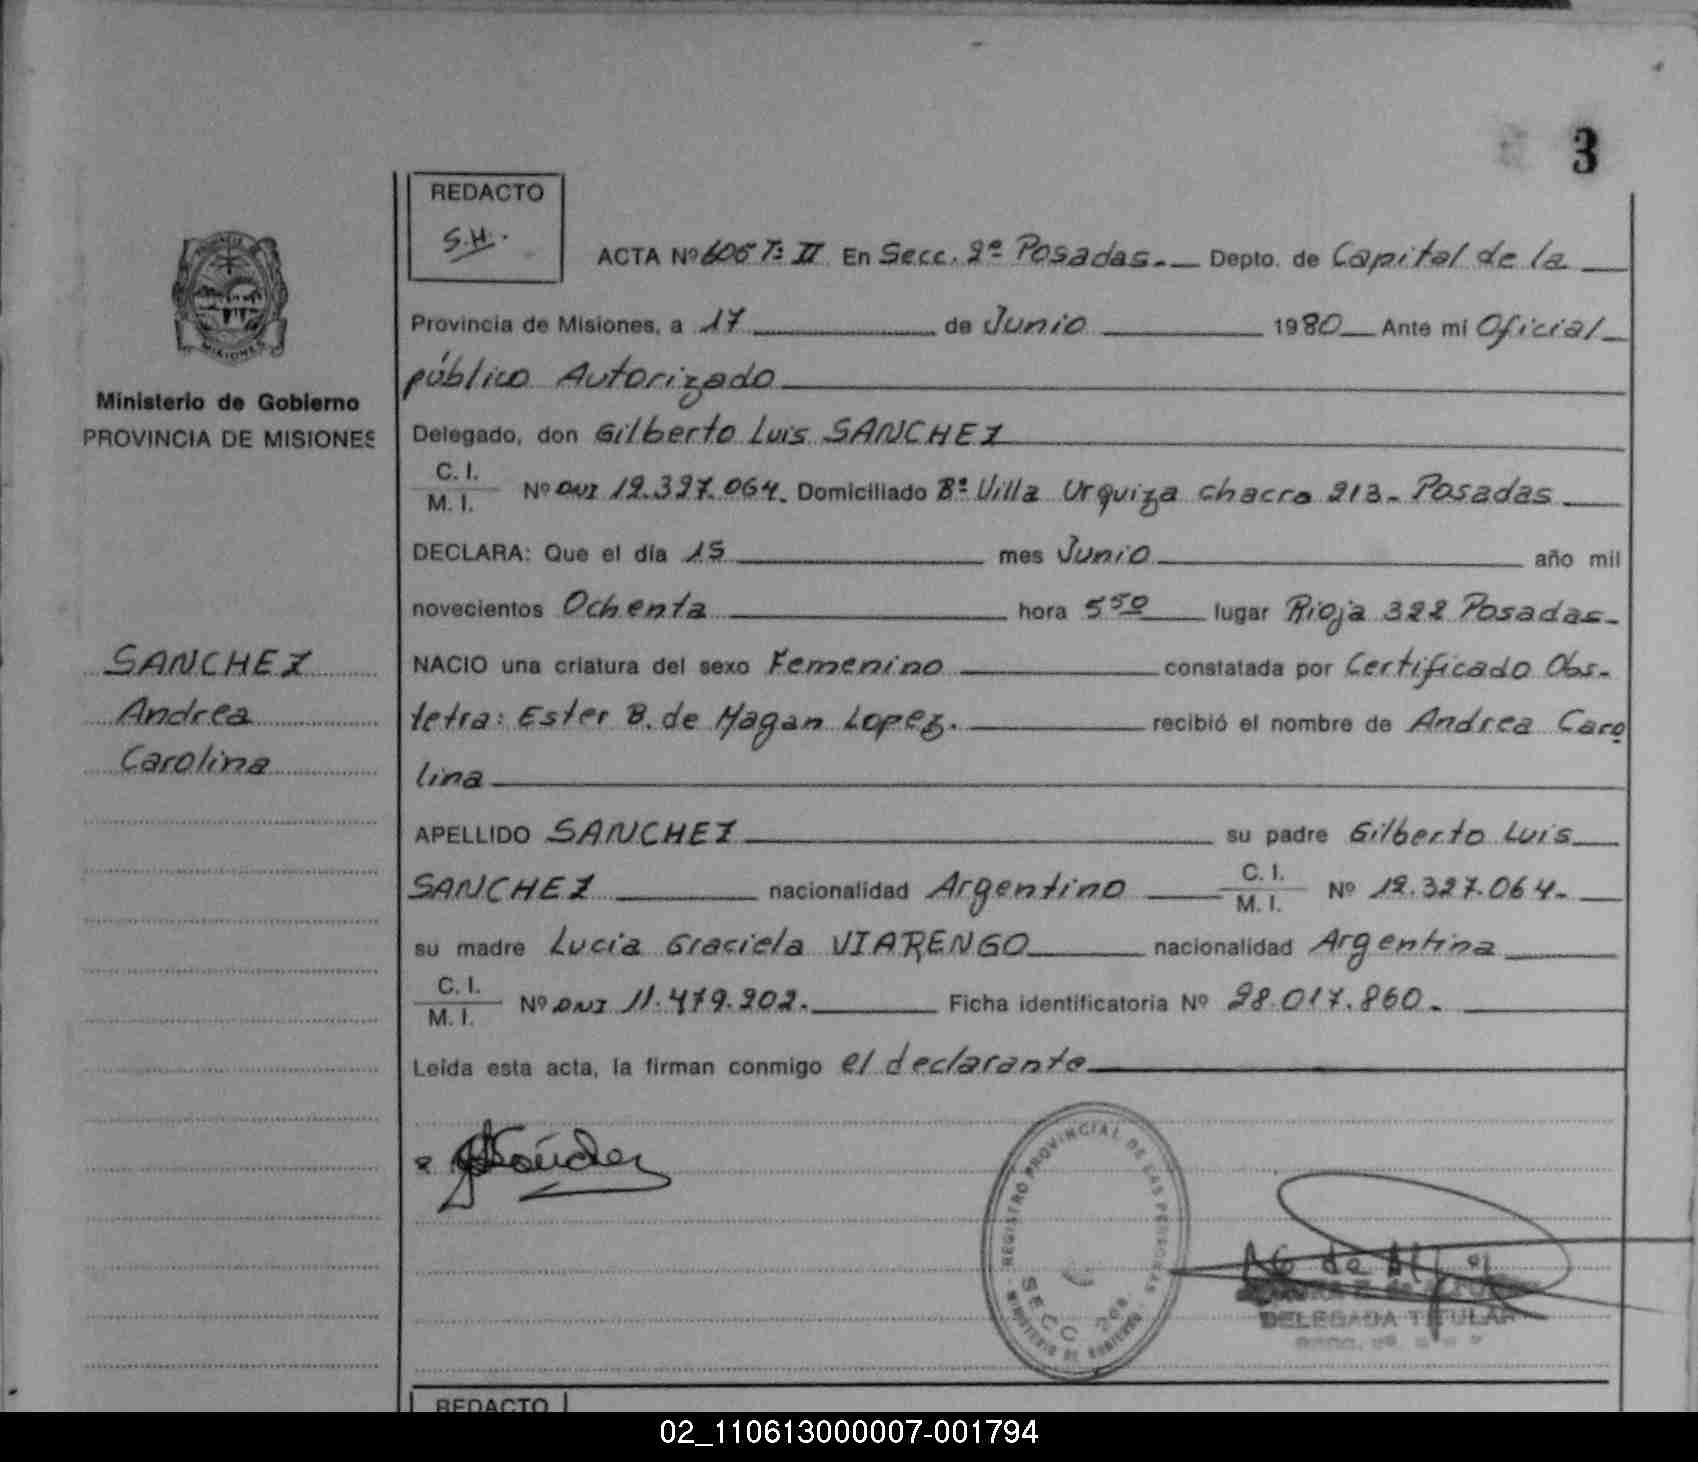 3
REDACTO
S.H.
ACTA Nº 606 Tº II En Secc. 2ª Posadas. Depto. de Capital de la
Provincia de Misiones, a 17 de Junio 1980 Ante mi Oficial
público Autorizado
MISIONES
Ministerio de Gobierno
PROVINCIA DE MISIONES
Delegado, don Gilberto Luis SANCHEZ
C. I.
M. I. Nº DNI 12.327.064. Domiciliado Bº Villa Urquiza chacra 213. Posadas
DECLARA: Que el día 15 mes Junio año mil
novecientos Ochenta hora 5 50 lugar Rioja 322 Posadas.
SANCHEZ
Andrea
Carolina
NACIO una criatura del sexo Femenino constatada por Certificado Obs-
tetra: Ester B. de Magan Lopez. recibió el nombre de Andrea Caro
lina
APELLIDO SANCHEZ su padre Gilberto Luis
SANCHEZ nacionalidad Argentino C. I. M. I. Nº 12.327.064.
su madre Lucia Graciela VIARENGO nacionalidad Argentina
C. I.
M. I. Nº DNI 11.479.202. Ficha identificatoria Nº 28.017.860.
Leída esta acta, la firman conmigo el declarante
REGISTRO PROVINCIAL DE LAS PERSONAS
SECC 2da.
MINISTERIO DE GOBIERNO
DELEGADA TITULAR
REDACTO
02_110613000007-001794